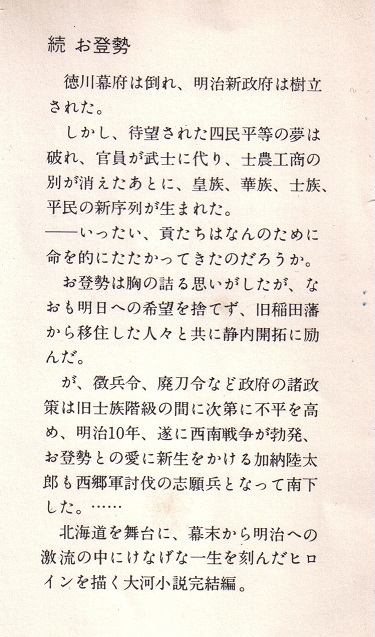 続 お登勢
徳川幕府は倒れ、明治新政府は樹立
された。
しかし、待望された四民平等の夢は
破れ、官員が武士に代り、士農工商の
別が消えたあとに、皇族、華族、士族、
平民の新序列が生まれた。
──いったい、貢たちはなんのために
命を的にたたかってきたのだろうか。
お登勢は胸の詰る思いがしたが、な
おも明日への希望を捨てず、旧稲田藩
から移住した人々と共に静内開拓に励
んだ。
が、徴兵令、廃刀令など政府の諸政
策は旧士族階級の間に次第に不平を高
め、明治10年、遂に西南戦争が勃発、
お登勢との愛に新生をかける加納陸太
郎も西郷軍討伐の志願兵となって南下
した。……
北海道を舞台に、幕末から明治への
激流の中にけなげな一生を刻んだヒロ
インを描く大河小説完結編。